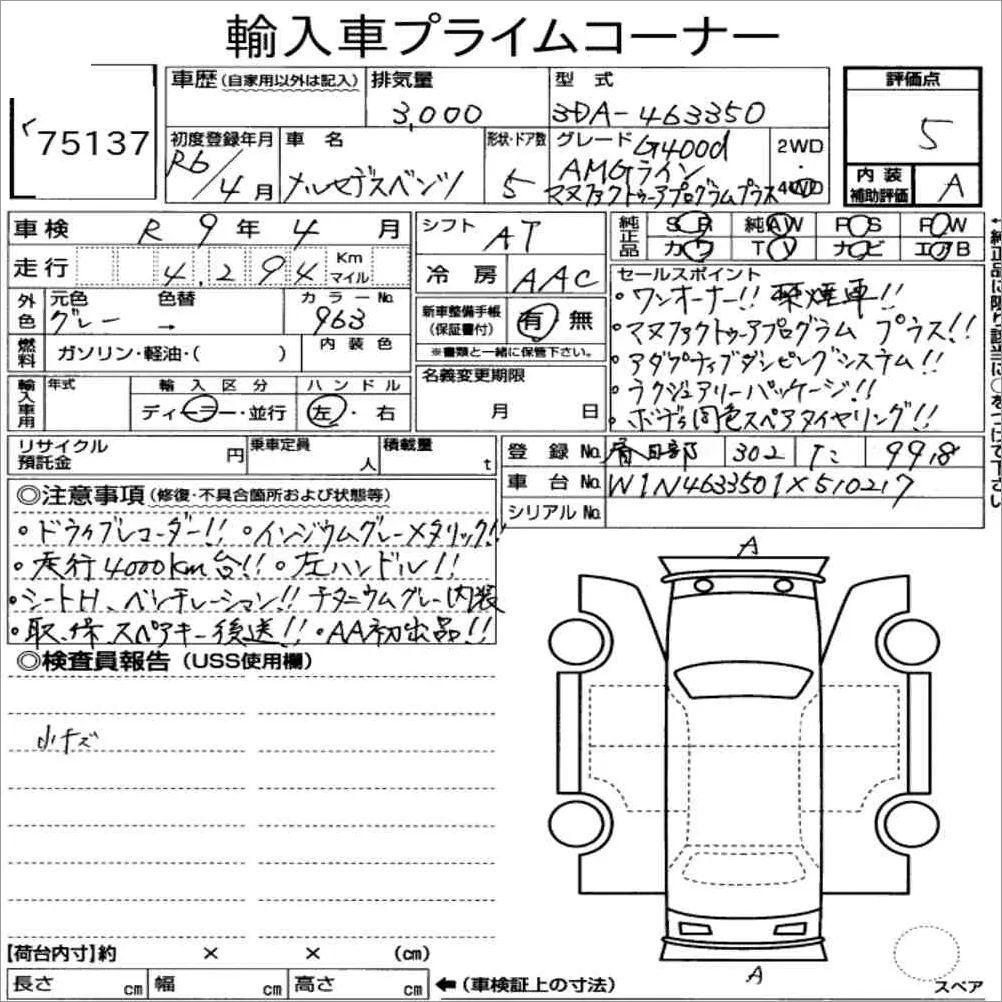 輸入車プライムコーナー
75137
車歴(自家用以外は記入)
排気量
3,000
型 式
3DA-463350
評価点
5
初度登録年月
R6/4月
車 名
メルセデスベンツ
形状・ドア数
5
グレード G400d
AMGライン
マヌファクトゥーアプログラムプラス
2WD
・
4WD
内 装
補助評価
A
車検 R 9 年 4 月
シフト AT
純正品
SR 純AW PS PW
カワ TV ナビ エアB
走行 4,294 Km マイル
冷 房 AAC
外色
元色 色替 カラーNo.
グレー → 963
新車整備手帳
(保証書付)
有 無
※書類と一緒に保管下さい。
セールスポイント
・ワンオーナー!! 禁煙車!!
・マヌファクトゥーアプログラム プラス!!
・アダプティブダンピングシステム!!
・ラグジュアリーパッケージ!!
・ボディ同色スペアタイヤリング!!
燃料
ガソリン・軽油・( )
内 装 色
名義変更期限
月 日
輸入車用
年式
輸 入 区 分
ディーラー・並行
ハ ン ド ル
左・右
リサイクル
預託金
円
乗車定員
人
積載量
t
登 録 No. 春日部 302 た 9918
車 台 No. W1N4633501X510217
シリアル No.
◎注意事項(修復・不具合箇所および状態等)
・ドライブレコーダー!! ・インジウムグレーメタリック!!
・走行4000km台!! ・左ハンドル!!
・シートH、ベンチレーション!! チタニウムグレー内装
・取、保、スペアキー後送!! ・AA初出品!!
◎検査員報告(USS使用欄)
小キズ
A
A
【荷台内寸】約 × × (cm)
長さ cm 幅 cm 高さ cm
←(車検証上の寸法)
スペア